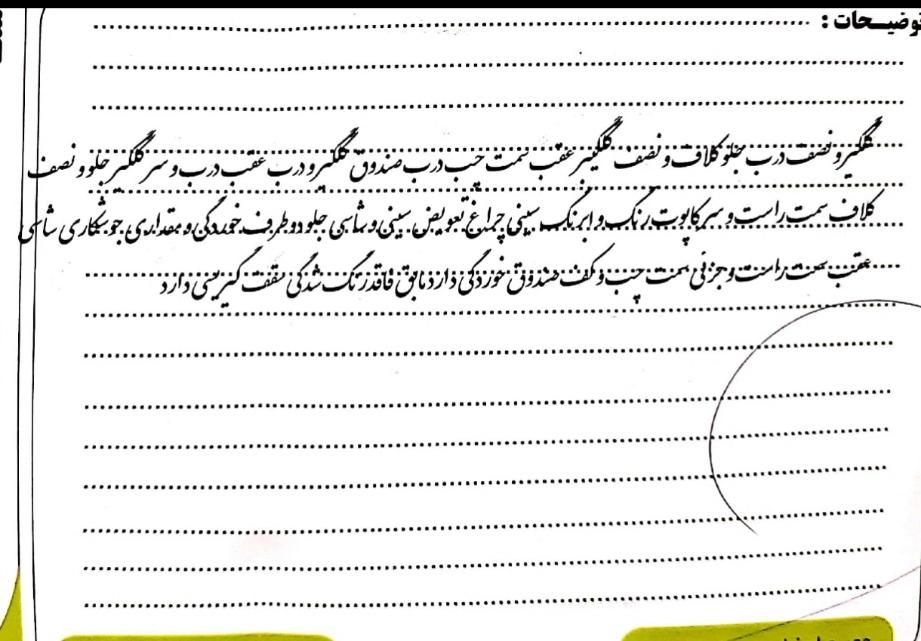 توضیحات :
گلگیر و نصف درب جلو کلاف و نصف گلگیر عقب سمت چپ درب صندوق گلگیر و درب عقب درب و سر گلگیر جلو و نصف
کلاف سمت راست و سر کاپوت رنگ و ابر رنگ سینی چراغ تعویض سینی و شاسی جلو دو طرف خوردگی و مقداری جوشکاری شاسی
عقب سمت راست و جزئی سمت چپ و کف صندوق خوردگی دارد مابقی فاقد رنگ شدگی سقف دارد